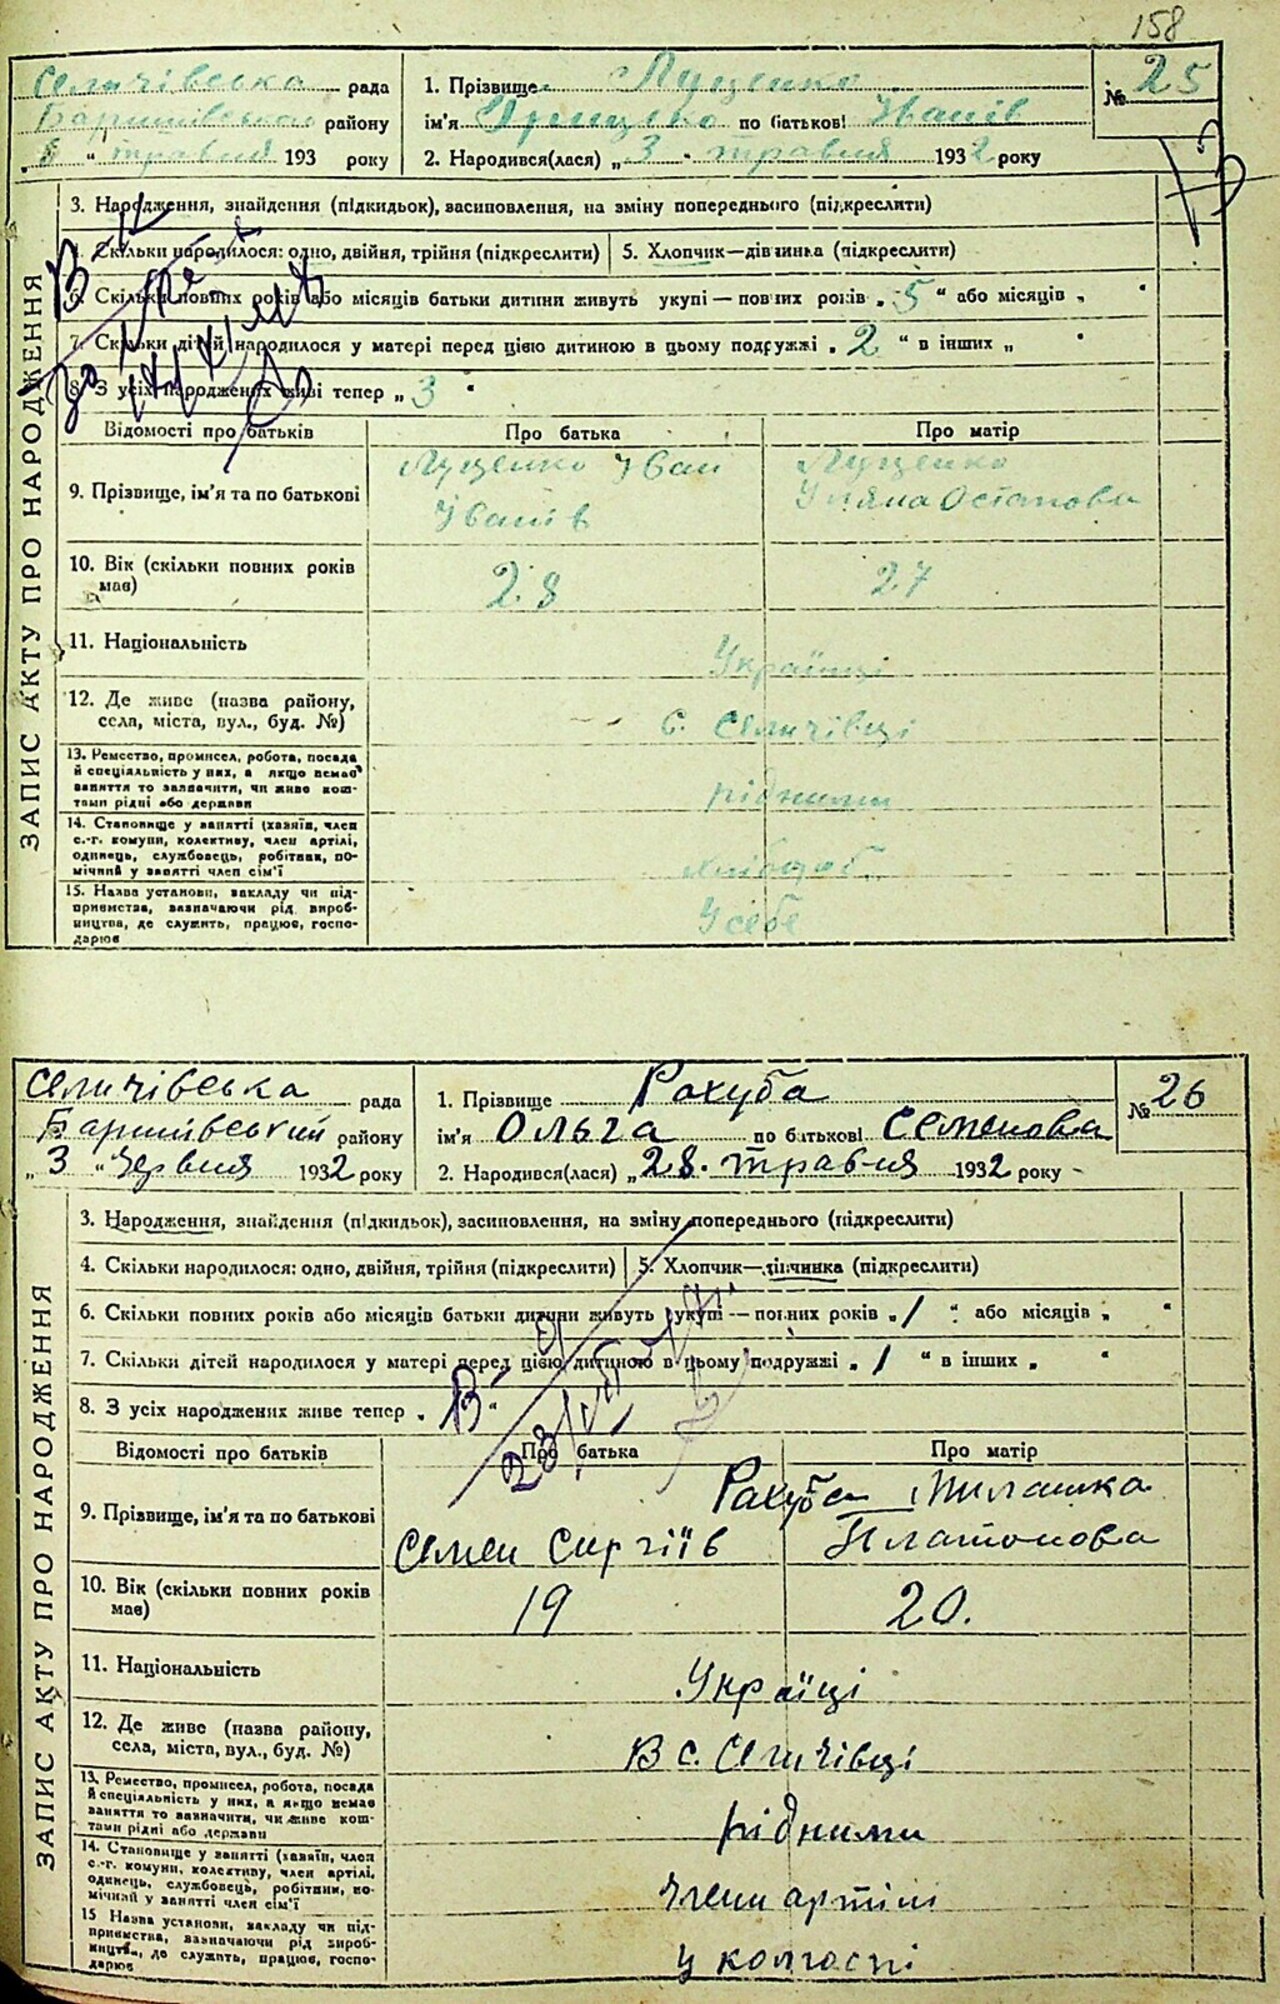 158
Селичівська рада
Баришівського району
„8 “ травня 193 року
1. Прізвище Луценко
ім’я Грицько по батькові Іванів
2. Народився(лася) „3 “ травня 1932 року
№ 25
ЗАПИС АКТУ ПРО НАРОДЖЕННЯ
3. Народження, знайдення (підкидьок), засиновлення, на зміну попереднього (підкреслити)
4. Скільки народилося: одно, двійня, трійня (підкреслити) 5. Хлопчик—дівчинка (підкреслити)
6. Скільки повних років або місяців батьки дитини живуть укупі — повних років „ 5 “ або місяців „ “
7. Скільки дітей народилося у матері перед цією дитиною в цьому подружжі „ 2 “ в інших „ “
8. З усіх народжених живі тепер „ 3 “
Відомості про батьків Про батька Про матір
9. Прізвище, ім’я та по батькові
Луценко Іван
Іванів
Луценко
Уляна Остапова
10. Вік (скільки повних років
має)
28 27
11. Національність Українці
12. Де живе (назва району,
села, міста, вул., буд. №)
с. Селичівці
13. Ремество, промисел, робота, посада
й спеціальність у них, а якщо немає
заняття то зазначити, чи живе кош-
тами рідні або держави
рідними
14. Становище у занятті (хазяїн, член
с.-г. комуни, колективу, член артілі,
одинець, службовець, робітник, по-
мічний у занятті член сім’ї
хлібороб
15. Назва установи, закладу чи під-
приємства, зазначаючи рід вироб-
ництва, де служить, працює, госпо-
дарює
У себе
Селичівська рада
Баришівський району
„ 3 “ Червня 1932 року
1. Прізвище Рахуба
ім’я Ольга по батькові Семенова
2. Народився(лася) „28. травня 1932 року
№ 26
ЗАПИС АКТУ ПРО НАРОДЖЕННЯ
3. Народження, знайдення (підкидьок), засиновлення, на зміну попереднього (підкреслити)
4. Скільки народилося: одно, двійня, трійня (підкреслити) 5. Хлопчик—дівчинка (підкреслити)
6. Скільки повних років або місяців батьки дитини живуть укупі — повних років „ 1 “ або місяців „ “
7. Скільки дітей народилося у матері перед цією дитиною в цьому подружжі „ 1 “ в інших „ “
8. З усіх народжених живе тепер „ “
Відомості про батьків Про батька Про матір
9. Прізвище, ім’я та по батькові
Рахуба
Семен Сиргіїв
Пилашка
Платонова
10. Вік (скільки повних років
має)
19 20.
11. Національність Українці
12. Де живе (назва району,
села, міста, вул., буд. №)
В с. Селичівці
13. Ремество, промисел, робота, посада
й спеціальність у них, а якщо немає
заняття то зазначити, чи живе кош-
тами рідні або держави
рідними
14. Становище у занятті (хазяїн, член
с.-г. комуни, колективу, член артілі,
одинець, службовець, робітник, по-
мічний у занятті член сім’ї
Члени артіли
15 Назва установи, закладу чи під-
приємства, зазначаючи рід вироб-
ництва, де служить, працює, госпо-
дарює
у колгоспі